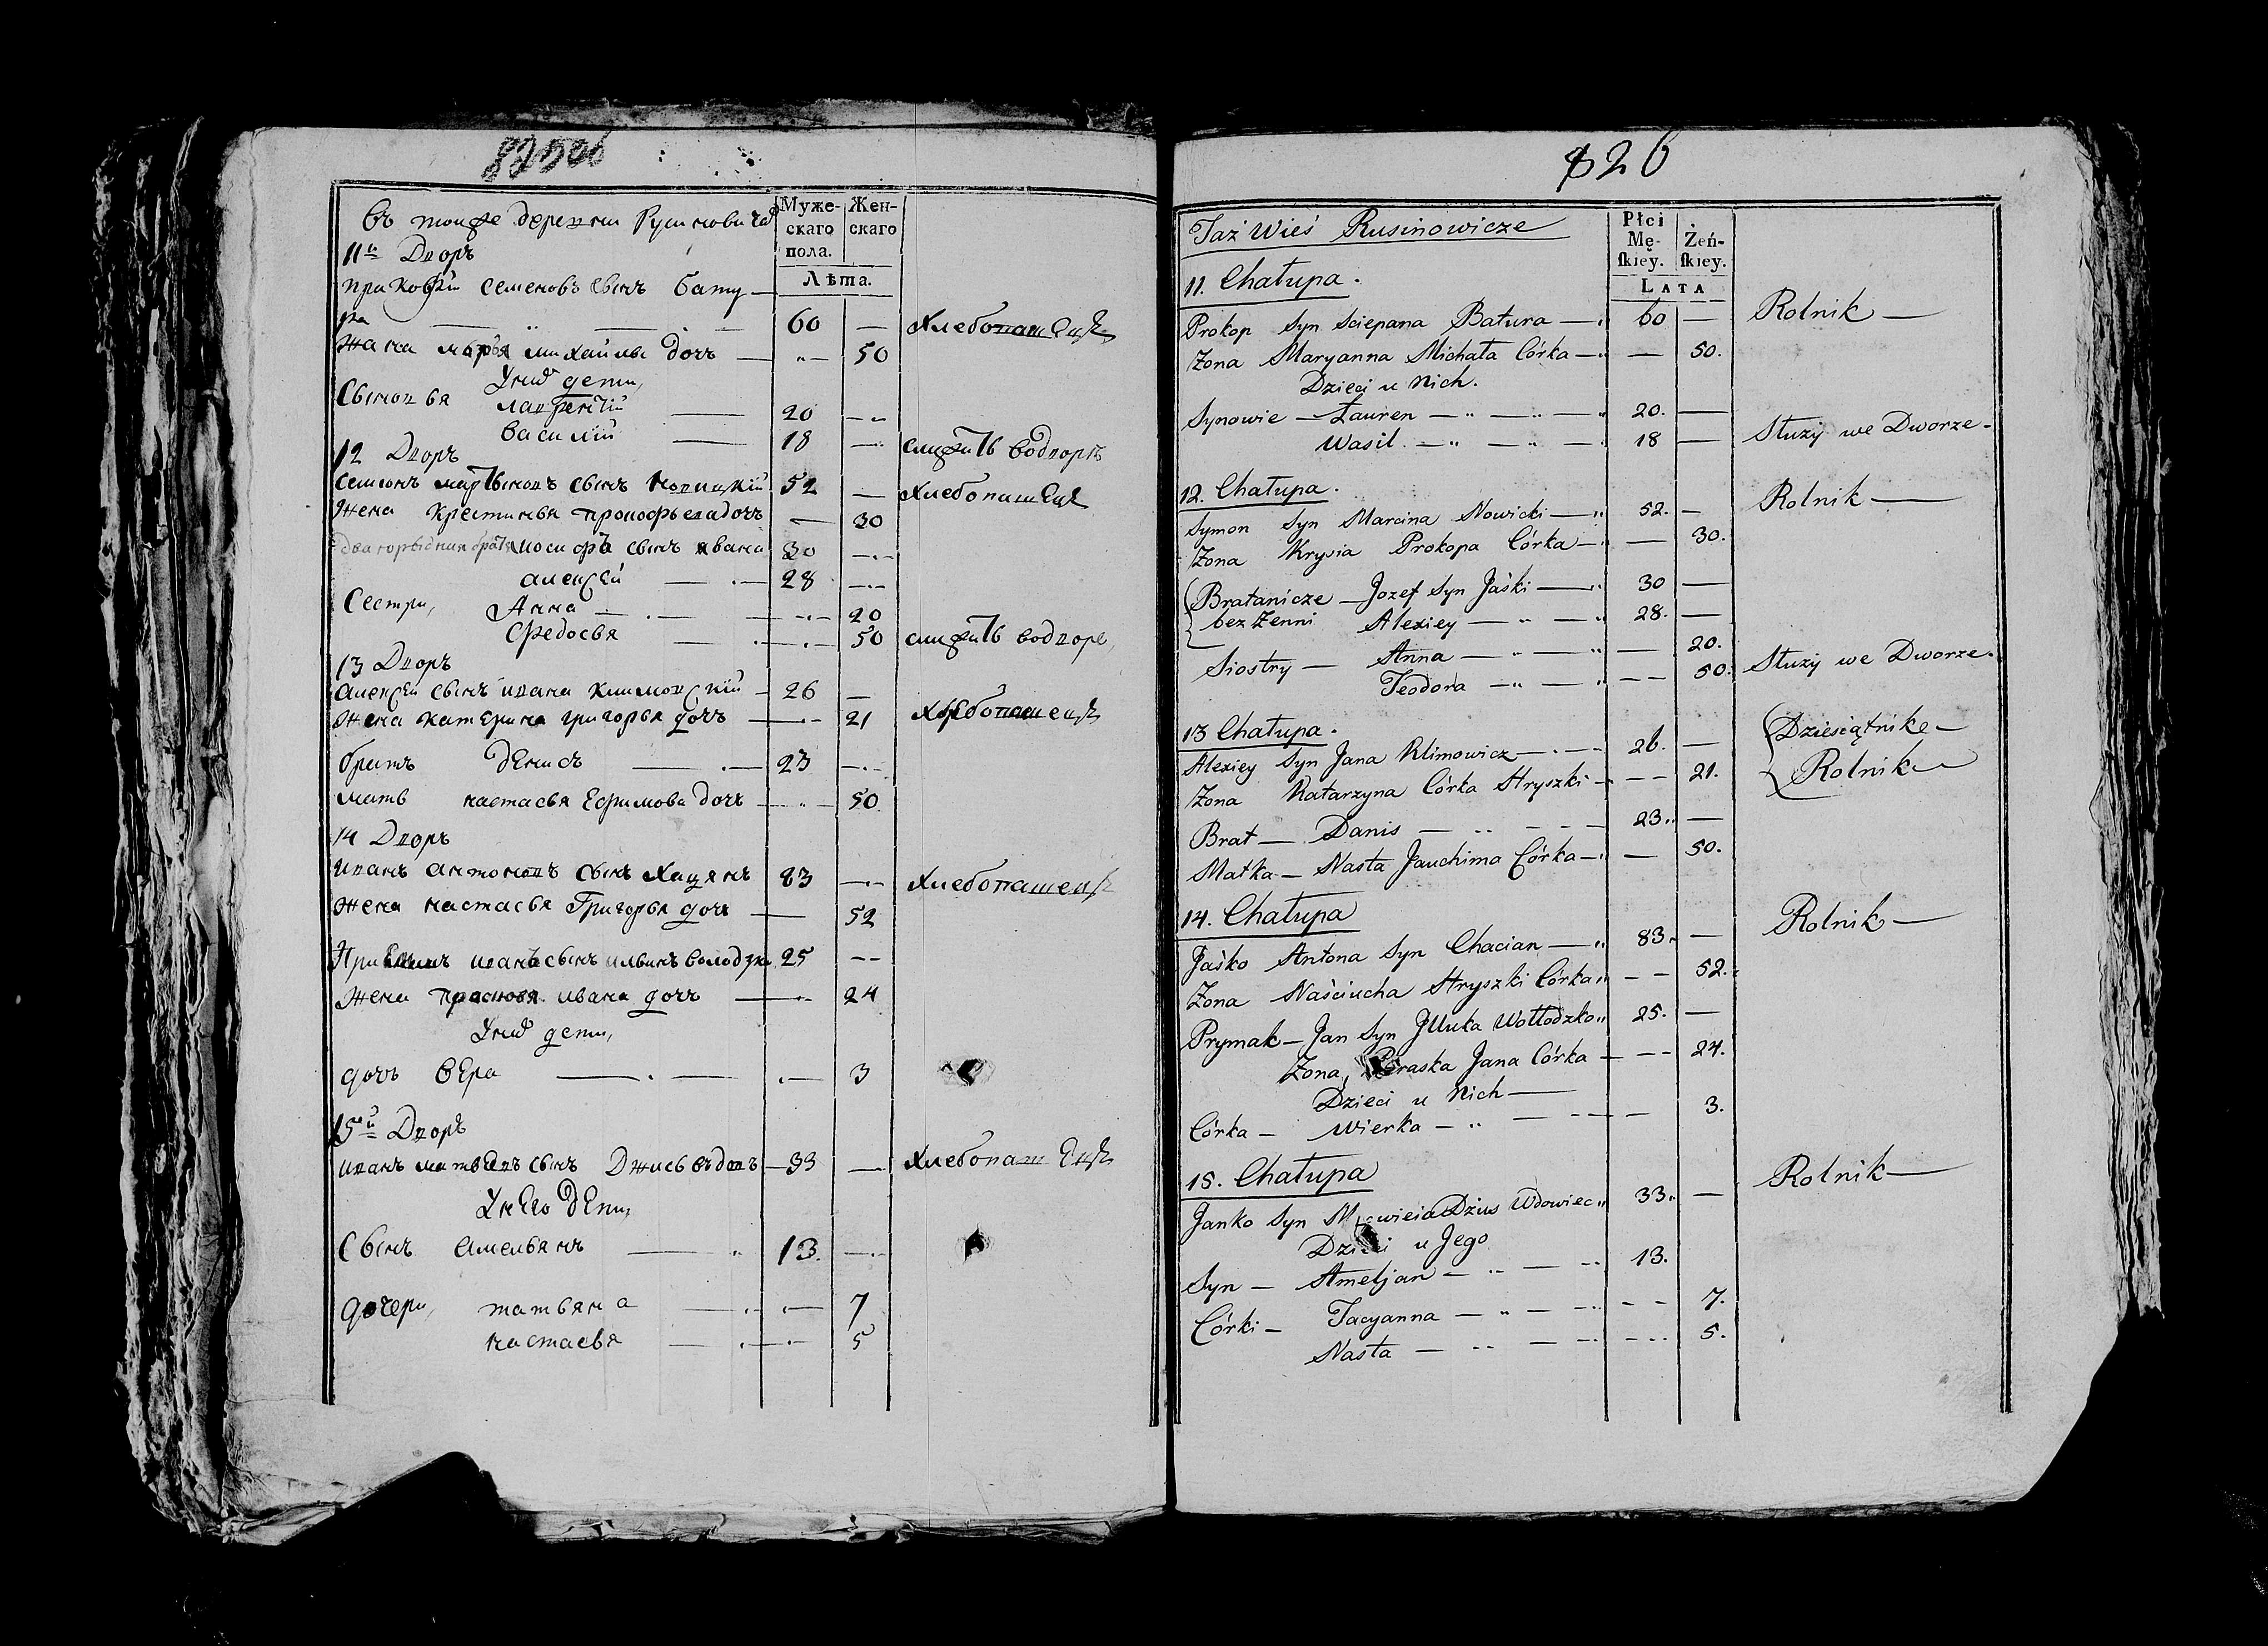 въ тойже деревни Русиновичахъ
Муже-
скаго
пола.
Жен-
скаго
Лѣта.
11й Дворъ
Пракофій Семеновъ сынъ Бату
ра 60 — хлебопашецъ
жана марья михайлы дочъ — 50
У них дети,
Сыновья лаврентій — 20
василий — 18 — служитъ во дворѣ
12 Дворъ
Семионъ мартыновъ сынъ новицкій 52 — хлебопашецъ
Жена крестинья прокофьева дочъ — 30
двоюродния братья иосифъ сынъ ивана 30
алексей — 28
Сестры, Анна — 20
Федосья — 50 служитъ во дворе,
13 Дворъ
алексей сынъ ивана климовский 26 —
Жена катерина григорья дочъ — 21 хлебопашецъ
братъ денисъ — 23
мать настасья Ефимова дочъ — 50
14 Дворъ
иванъ антоновъ сынъ Хацянъ 83 — хлебопашецъ
жена настасья Григорья дочъ — 52
иванъ сынъ ильинъ володзко 25 --
Жена прасковя ивана дочъ — 24
У них дети,
дочъ вера — 3
15й Дворъ
иванъ матвеевъ сынъ вдовъ — 33 — хлебопашецъ
У него дети,
Сынъ емельянъ — 13.
дочери, татьяна — 7
настасья — 5
826
Taż Wieś Rusinowicze
Płci
Mę-
ſkiey.
Żeń-
ſkiey.
LATA
11. Chałupa.
Prokop Syn Sciepana Batura — 60 — Rolnik —
Żona Maryanna Michała Córka — — 50.
Dzieci u Nich.
Synowie — Łauren — 20. —
Wasil. — 18 — Służy we Dworze.
12. Chałupa.
Symon Syn Marcina Nowicki — 52. — Rolnik —
Żona Krysia Prokopa Córka — — 30.
Bratanicze — Jozef Syn Jaśki — 30 —
bez Żenni Alexiey — 28. —
Siostry — Anna — — 20.
Teodora — -- 50. Służy we Dworze.
13 Chałupa.
Alexiey Syn Jana Klimowicz — 26. — Dziesiątnike —
Żona Katarzyna Córka Hryszki — -- 21. Rolnik —
Brat — Danis — 23. —
Matka — Nasta Jauchima Córka — — 50.
14. Chałupa
Jaśko Antona Syn Chacian — 83. — Rolnik —
Żona Naściucha Hryszki Córka -- 52.
Prymak — Jan Syn Jlluka Wołłodzko 25. —
Żona, Paraska Jana Córka — -- 24.
Dzieci u Nich —
Córka — Wierka — 3.
15. Chałupa
Janko Syn Dzius Wdowiec 33. — Rolnik —
Dzieci u Jego
Syn — Ameljan — 13.
Córki — Tacyanna — -- 7.
Nasta — 5.